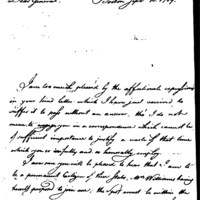 Dear General Boston Sept 10. 1789.
I am too much pleased by the affectionate expressions
in your kind letter which I have just received to
suffer it to pass without an answer, tho' I do not
mean to engage you in a correspondence which cannot be
of sufficient importance to justify a waste of that time
which you so usefully and so honorably employ.
I am sure you will be pleased to hear that I am to
be a permanent Citizen of this State. Mrs Williams having
herself proposed to join me, the Spot must be within the